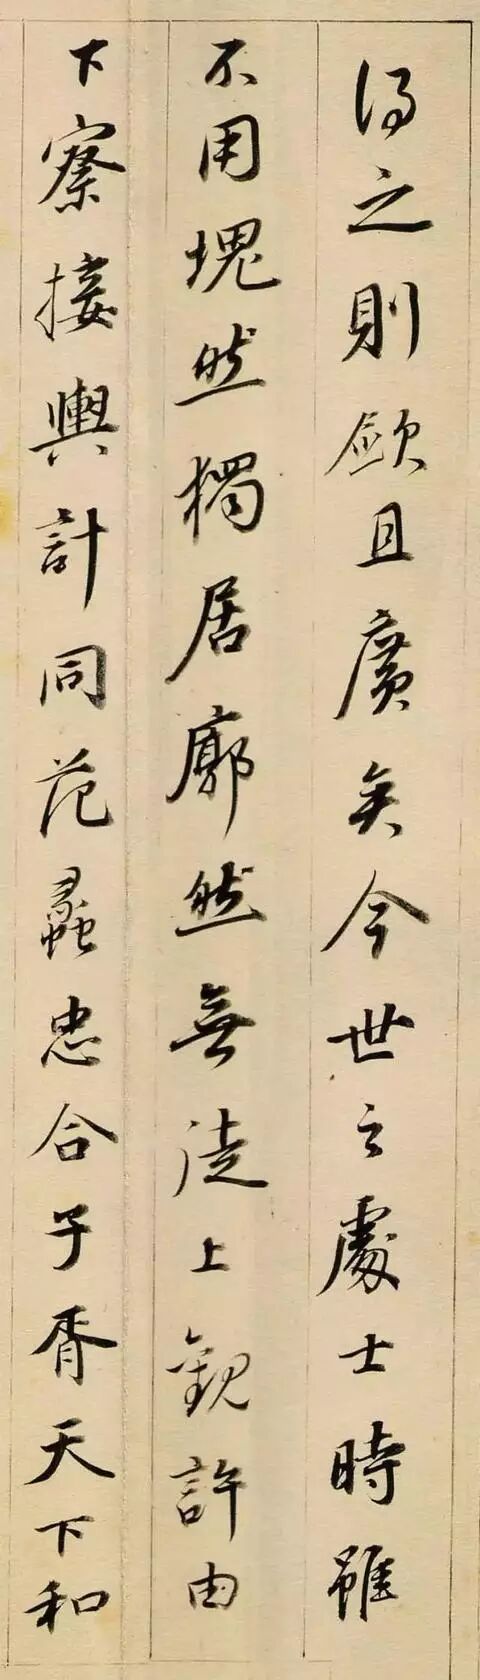 得之則歛且廣矣今世之處士時雖
不用塊然獨居廓然無徒上觀許由
下察接輿計同范蠡忠合子胥天下和